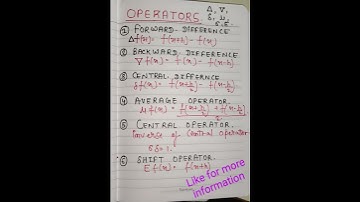 OPERATORS
Δ, ∇,
δ, μ,
S, E
① FORWARD DIFFERENCE
Δf(x) = f(x+h) - f(x)
② BACKWARD DIFFERENCE
∇ f(x) = f(x) - f(x-h)
③ CENTRAL DIFFERNCE
δf(x) = f(x+h/2) - f(x-h/2)
④ AVERAGE OPERATOR
μ f(x) = f(x+h/2) + f(x-h/2) / 2
⑤ CENTRAL OPERATOR
Inverse of Central operator
Sδ = 1
⑥ SHIFT OPERATOR
E f(x) = f(x+h)
Like for more
information